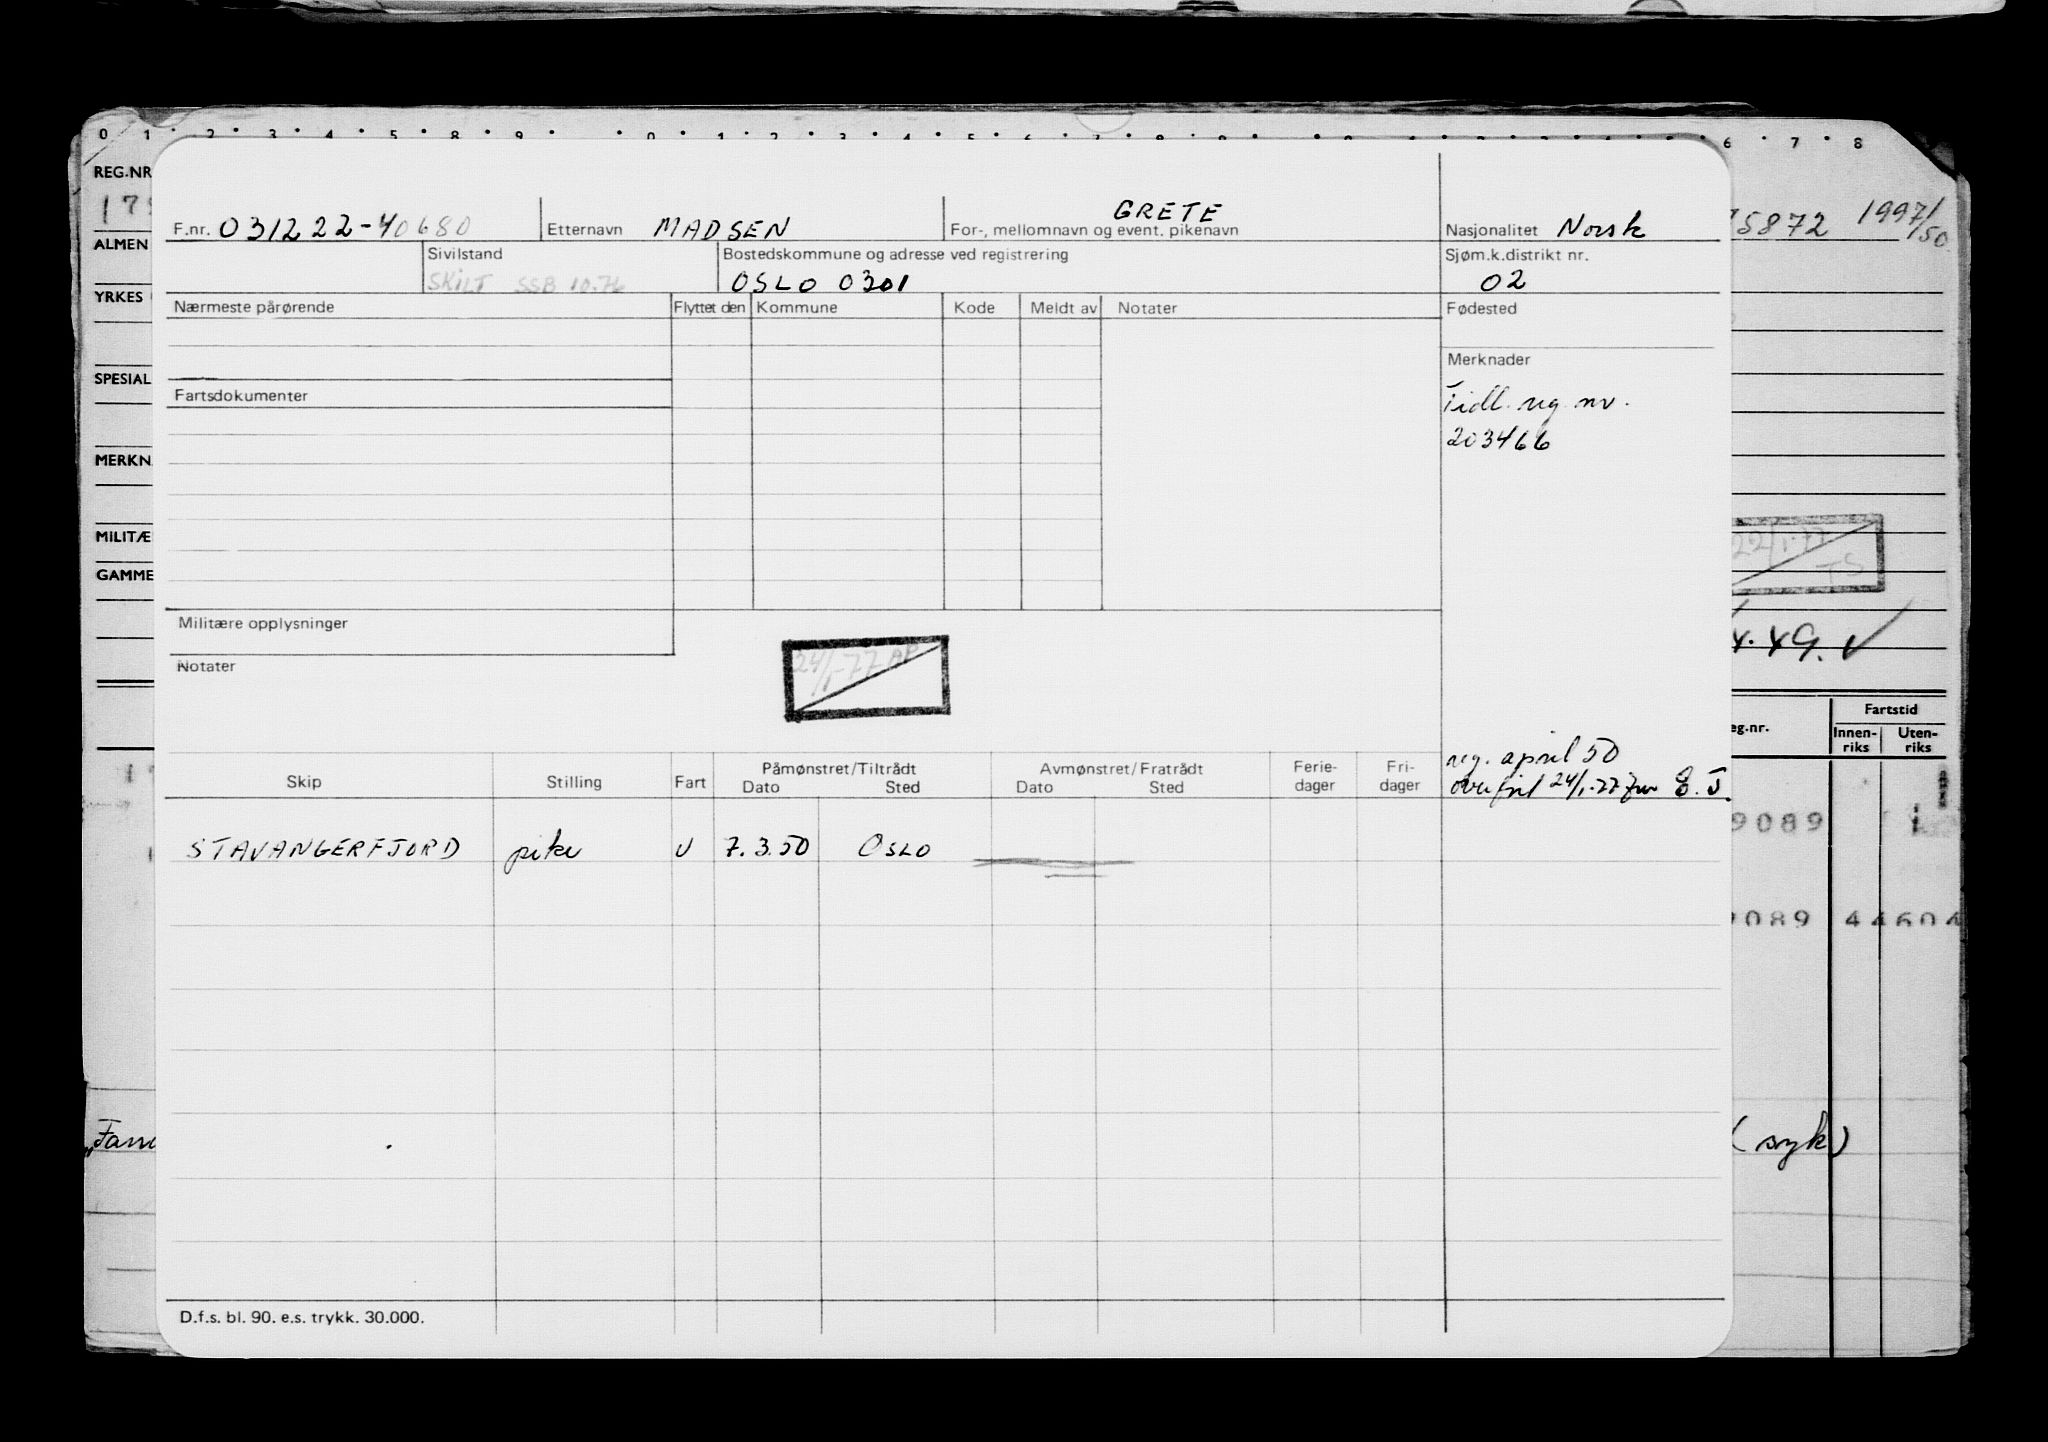 0 1 2 3 4 5 8 9 0 1 2 3 4 5 6 7 8
REG.NR
5872 1997/50
ALMEN
YRKES
SPESIAL
MERKN
MILITÆ
GAMME
F.nr. 031222-40680 Etternavn MADSEN For-, mellomnavn og event. pikenavn GRETE Nasjonalitet Norsk
Sivilstand SKILT SSB 10.76 Bostedskommune og adresse ved registrering OSLO 0301 Sjøm.k.distrikt nr. 02
Nærmeste pårørende Flyttet den Kommune Kode Meldt av Notater Fødested
Merknader
Fartsdokumenter
Tidl. reg. nr.
203466
22/1-77
TS
Militære opplysninger
4.49.
Notater
24/1-77 AP
reg. april 50
overført 24/1-77 E. J.
Skip Stilling Fart Påmønstret/Tiltrådt Dato Sted Avmønstret/Fratrådt Dato Sted Ferie-dager Fri-dager
eg.nr. Fartstid Innen-riks Uten-riks
STAVANGERFJORD pike U 7.3.50 OSLO
9089
9089 44604
(syk)
D.f.s. bl. 90. e.s. trykk. 30.000.